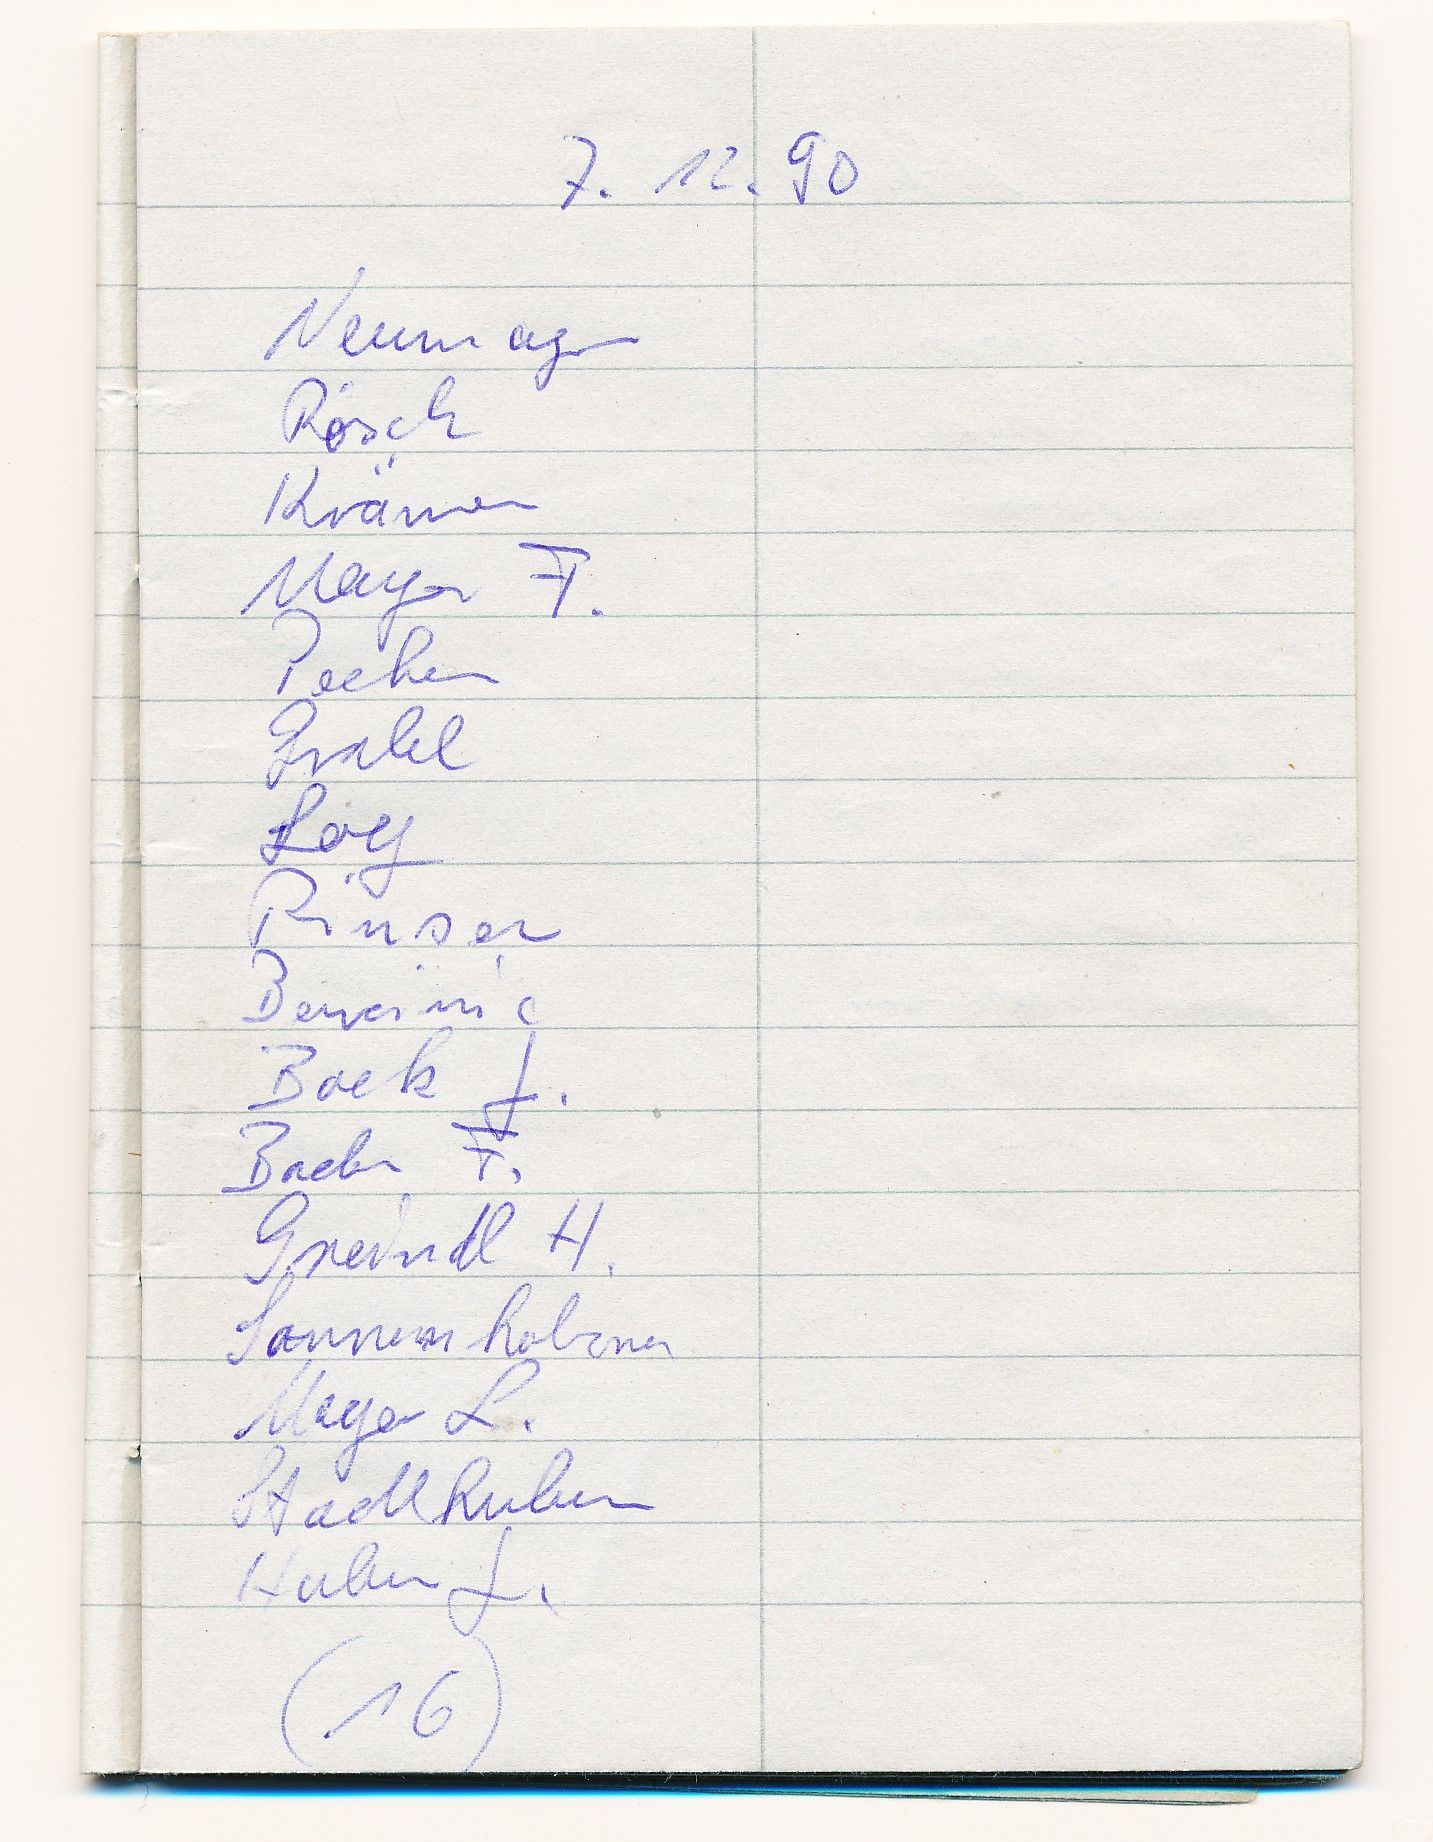 7. 12. 90
Neumayr
Rösch
Krämer
Mayer F.
Pecher
Grabl
Loy
Rinser
Berwein
Bock J.
Bock F.
Greindl H.
Sonnenholzner
Mayer L.
Stadlhuber
Huber J.
(16)